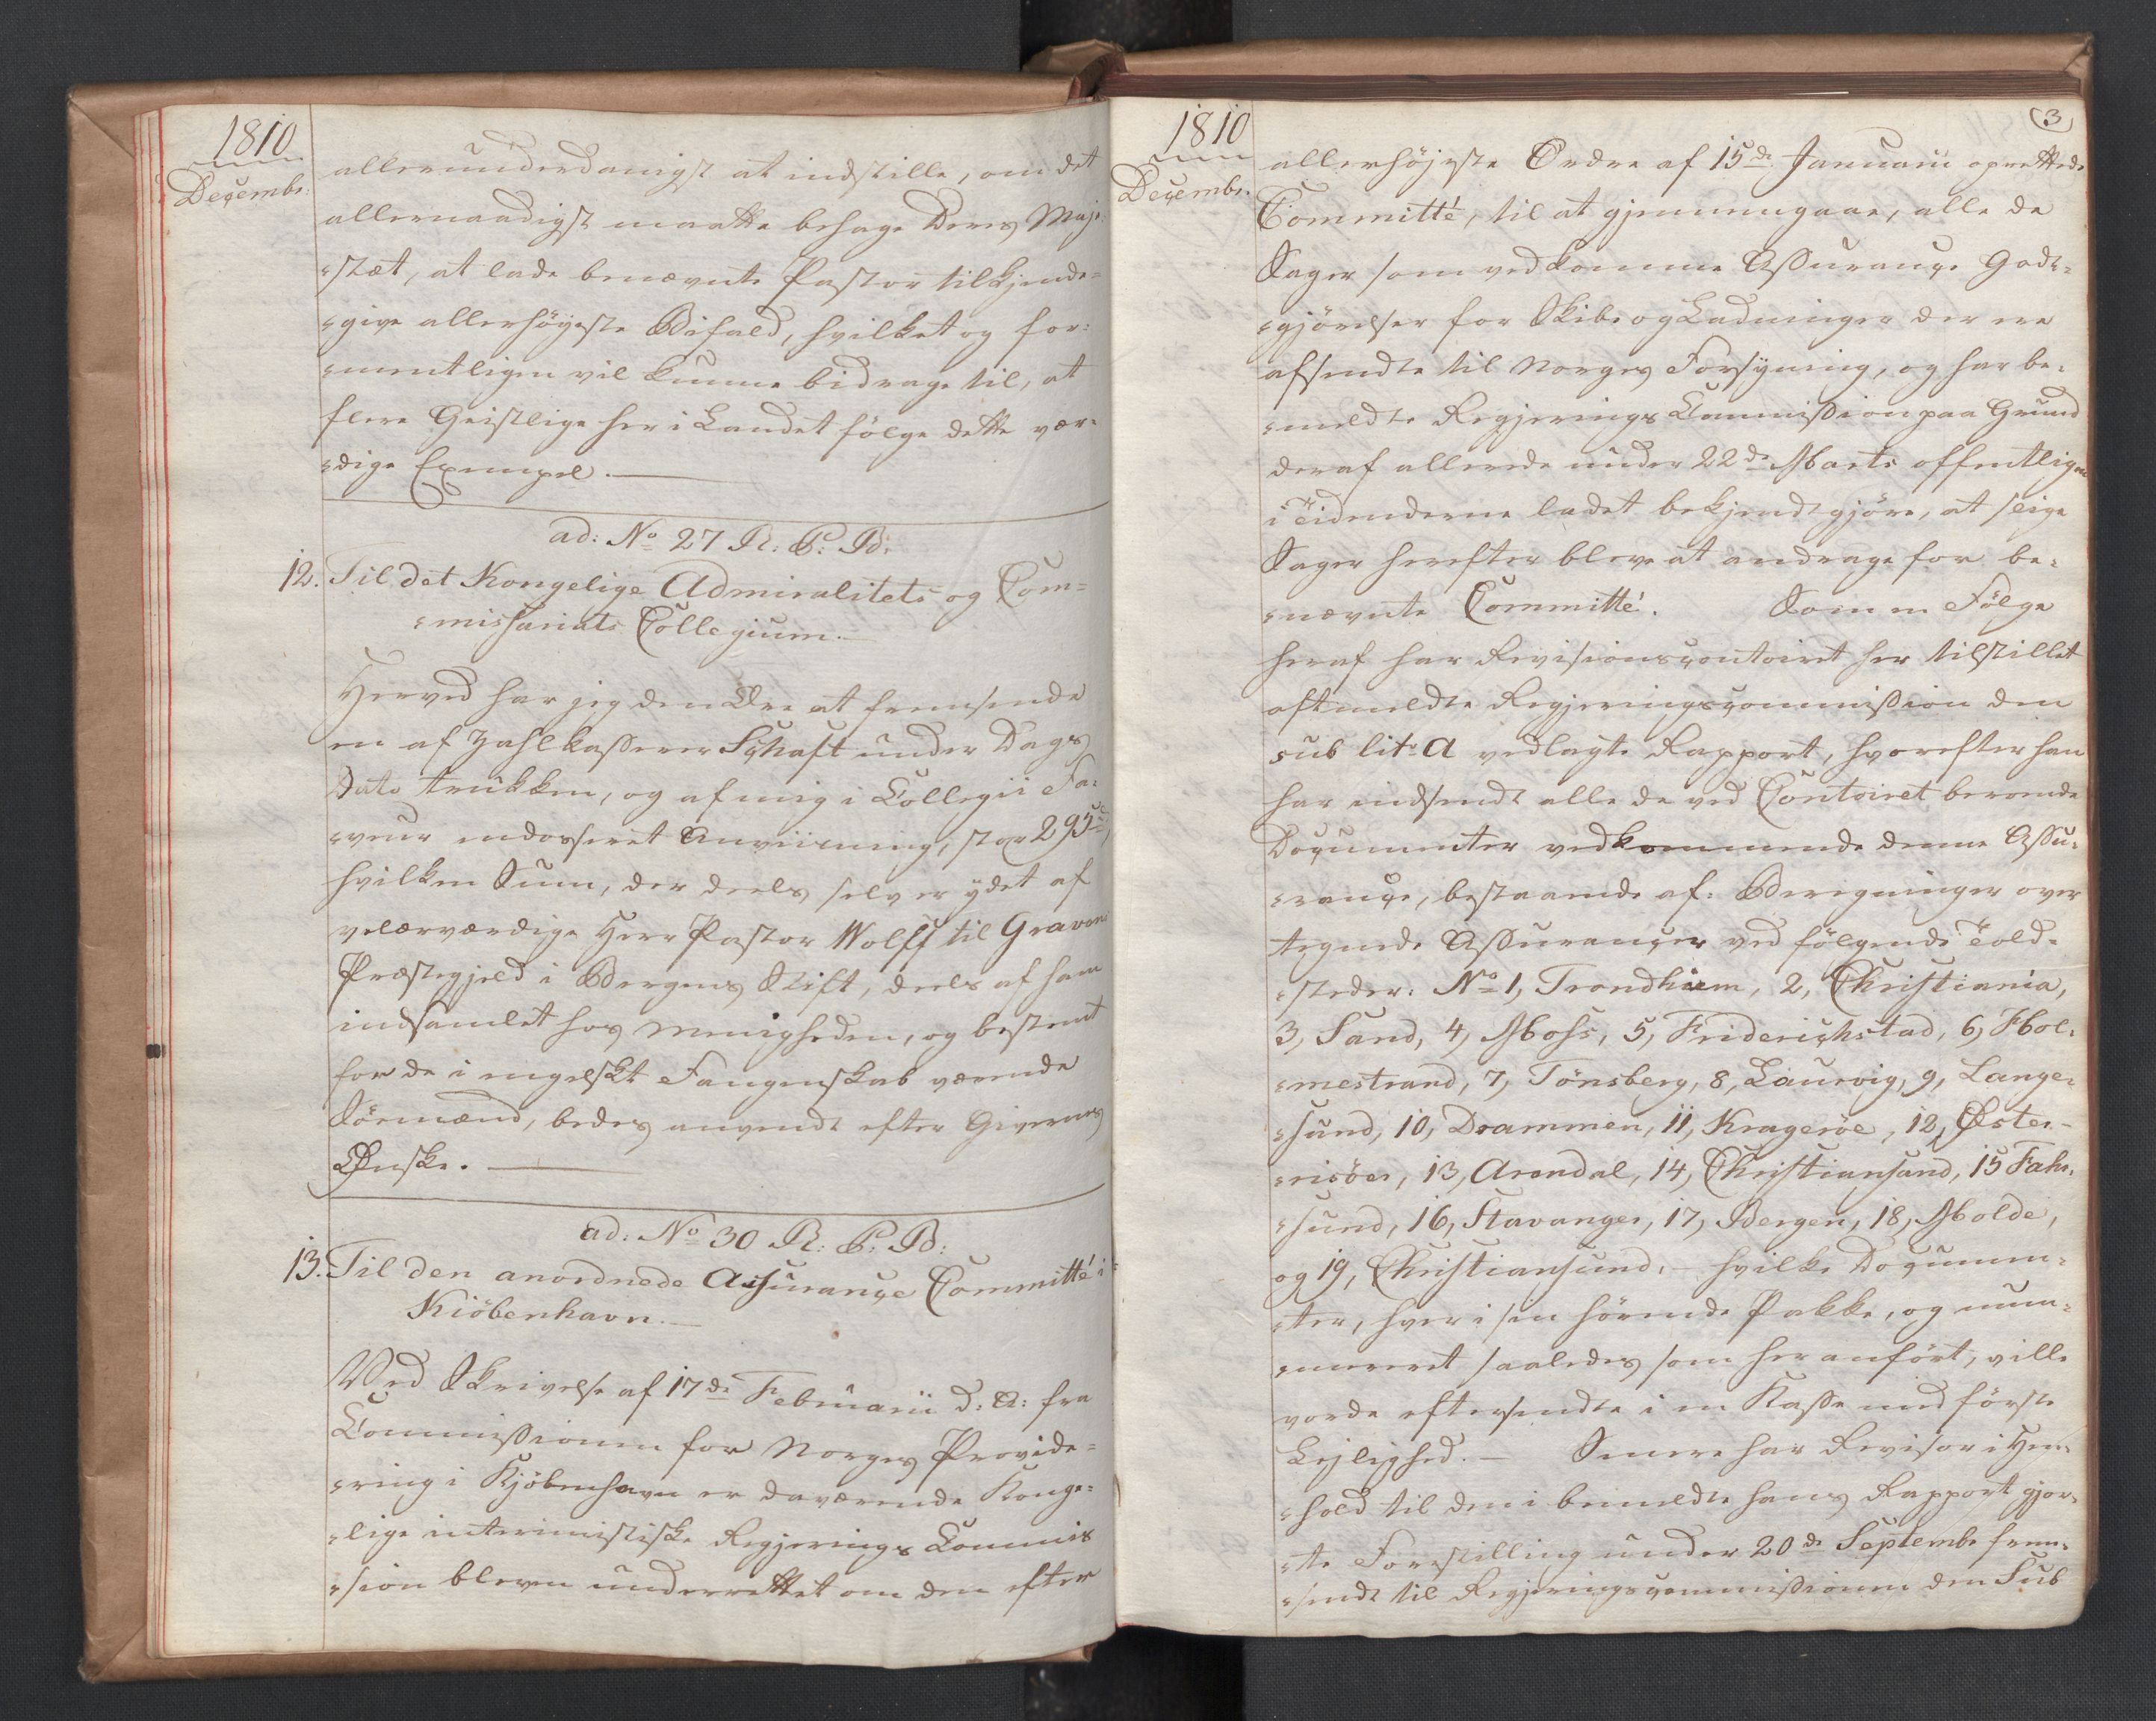 1810
Decembr:
allerunderdanigst at indstille, om det
allernaadigst maatte behage Deres Maje-
-stæt, at lade benævnte Pastor tilkjende-
-give allerhöyeste Bifald, hvilket og for-
-mentligen vil kunne bidrage til, at
flere Geistlige her i Landet fölge dette vær-
-dige Exempel.
ad: No 27 R: P: B:
12. Til det Kongelige Admiralitets og Com-
-missariats Collegium.
Herved har jeg den Ære at fremsende
en af Zahlkasserer Schaft under Dags
Dato trukken, og af mig i Collegii Fa-
-veur endosseret Anviisning, stor 295
hvilken Sum, der deels selv er ydet af
velærværdige Herr Pastor Wolff til Gravens
Præstegjeld i Bergens Stift, deels af ham
indsamlet hos Menigheden, og bestemt
for de i engelskt Fangenskab værende
Söemænd, bedes anvendt efter Givernes
Ønske.
ad: No 30 R: P: B:
13. Til den anordnede Assurance Committé i
Kiöbenhavn.
Ved Skrivelse af 17de Februarii d: A: fra
Commissionen for Norges Provide-
-ring i Kjöbenhavn er daværende Konge-
-lige interimistiske Regjerings Commis
-sion bleven underrettet om den efter
1810
Decembr.
3
allerhöjeste Ordre af 15de Januarii oprettede
Committé, til at gjennemgaae, alle de
Sager som vedkomme Assurance Godt-
-gjörelser for Skibe og Ladninger der ere
afsendte til Norges Forsyning, og har be-
-meldte Regjerings Commission paa Grund
deraf allerede under 22de Marts offentligen
i Tidenderne ladet bekjendtgjöre, at slige
Sager herefter bleve at andrage for be-
-nævnte Committé. Som en Fölge
heraf har Revisionscontoiret her tilstillet
oftmeldte Regjeringscommission den
sub litr A vedlagte Rapport, hvorefter han
har indsendt alle de ved Contoiret beroende
Documenter vedkommende denne Assu-
-rance, bestaaende af: Beregninger over
tegnede Assurancer ved fölgende Told-
-steder: No 1, Trondhiem, 2, Christiania,
3, Sand, 4, Moss, 5, Friderichstad, 6, Hol-
-mestrand, 7, Tönsberg, 8, Laurvig, 9, Lange-
-sund, 10, Drammen, 11, Krageröe, 12, Øster-
-risöer, 13, Arendal, 14, Christiansand, 15 Fahr-
-sund, 16, Stavanger, 17, Bergen, 18, Molde,
og 19, Christiansund, - hvilke Documen-
-ter, hver i sin hörende Pakke, og num-
-mereret saaledes som her anfört, ville
vorde eftersendte i en Kasse med förste
Lejlighed. - Senere har Revisor i Hen-
-hold til den i bemeldte hans Rapport gjor-
-te Forestilling under 20de Septembr frem-
-sendt til Regjeringscommissionen den Sub